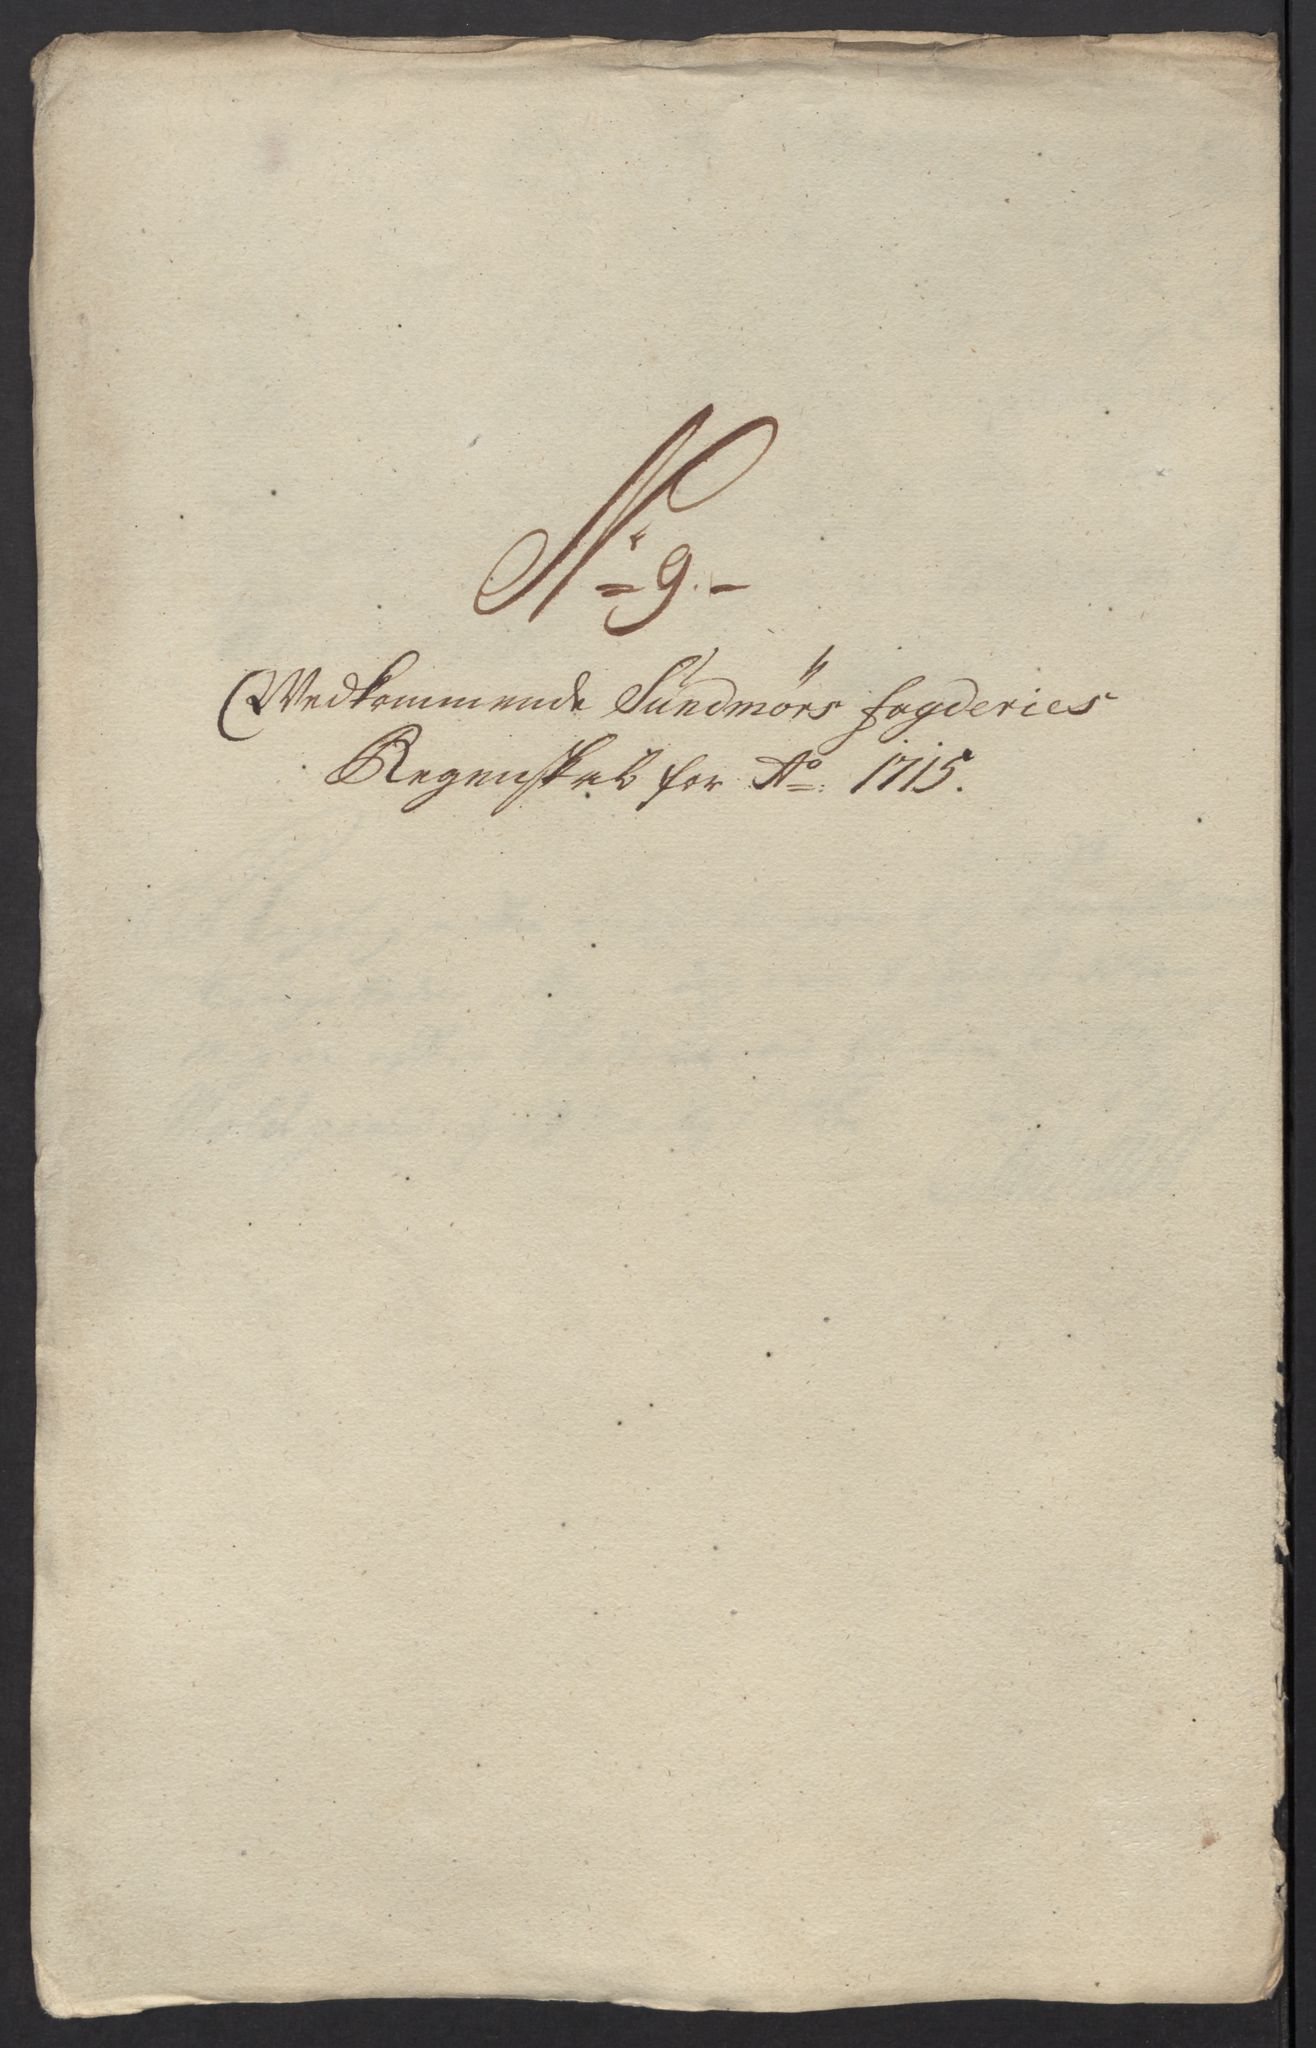 No 9.
Vedkommende Sundmörs fogderies
Regenskab for Ao: 1715.